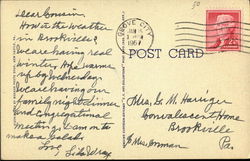 Dear Cousin
How is the weather
in Brookville?
We are having real
winter. Hope warms
up by Wednesday.
We are having our
family night dinner
and Congregational
Meeting. I am to
make a salad.
Love,
GROVE CITY
JAN
1967
POST CARD
Mrs. G. M. Harriger
Convalescent Home
Brookville
Pa.